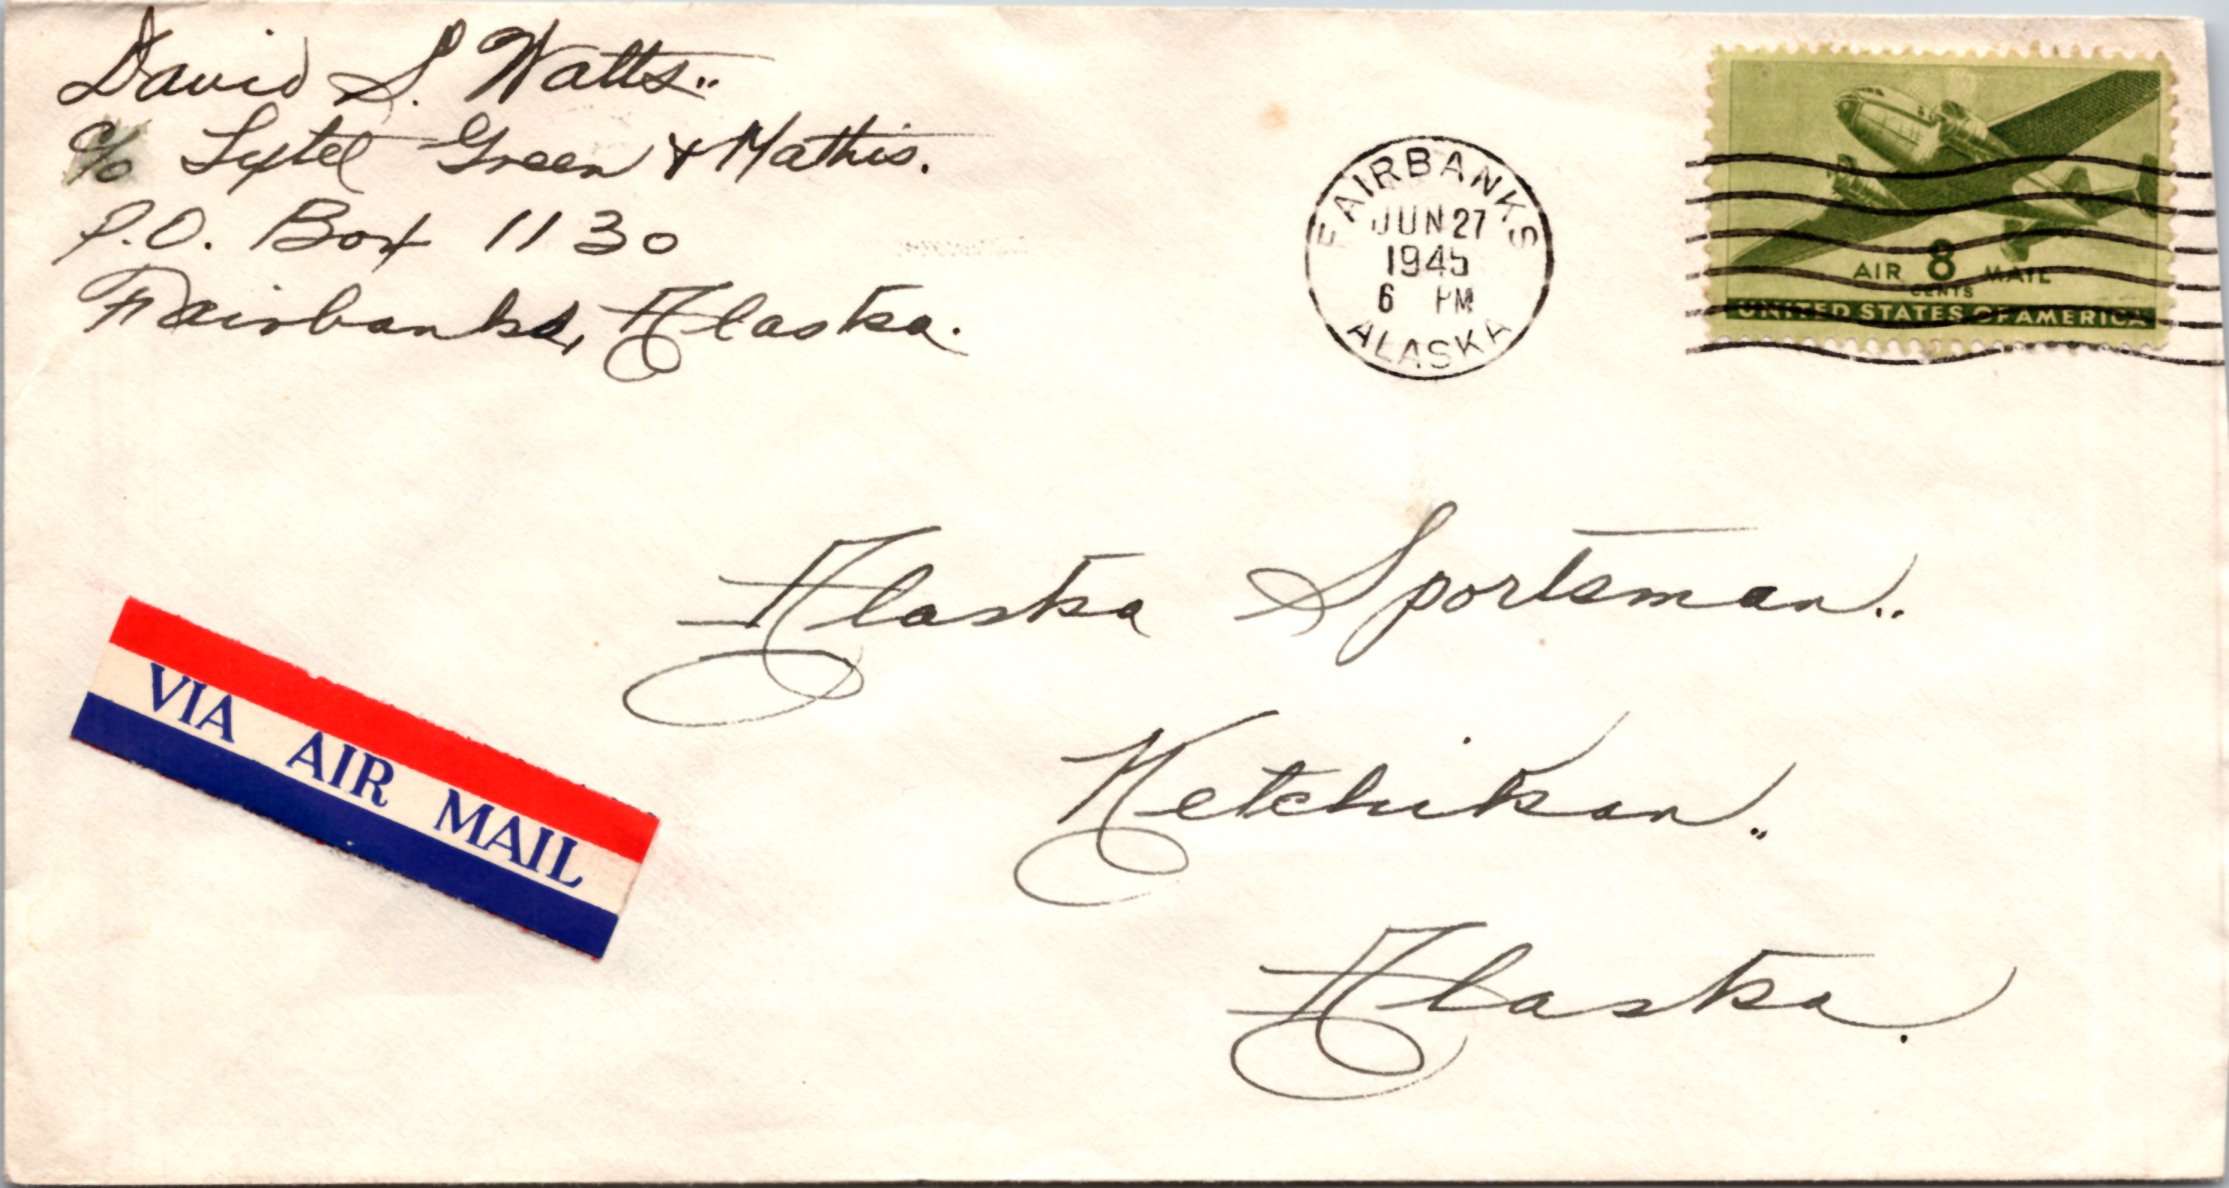 David S. Watts..
c/o Lytel Green & Mathis.
P.O. Box 1130
Fairbanks, Alaska.
FAIRBANKS
JUN 27
1945
6 PM
ALASKA
AIR 8 MAIL
CENTS
UNITED STATES OF AMERICA
Alaska Sportsman..
Ketchikan..
Alaska.
VIA AIR MAIL